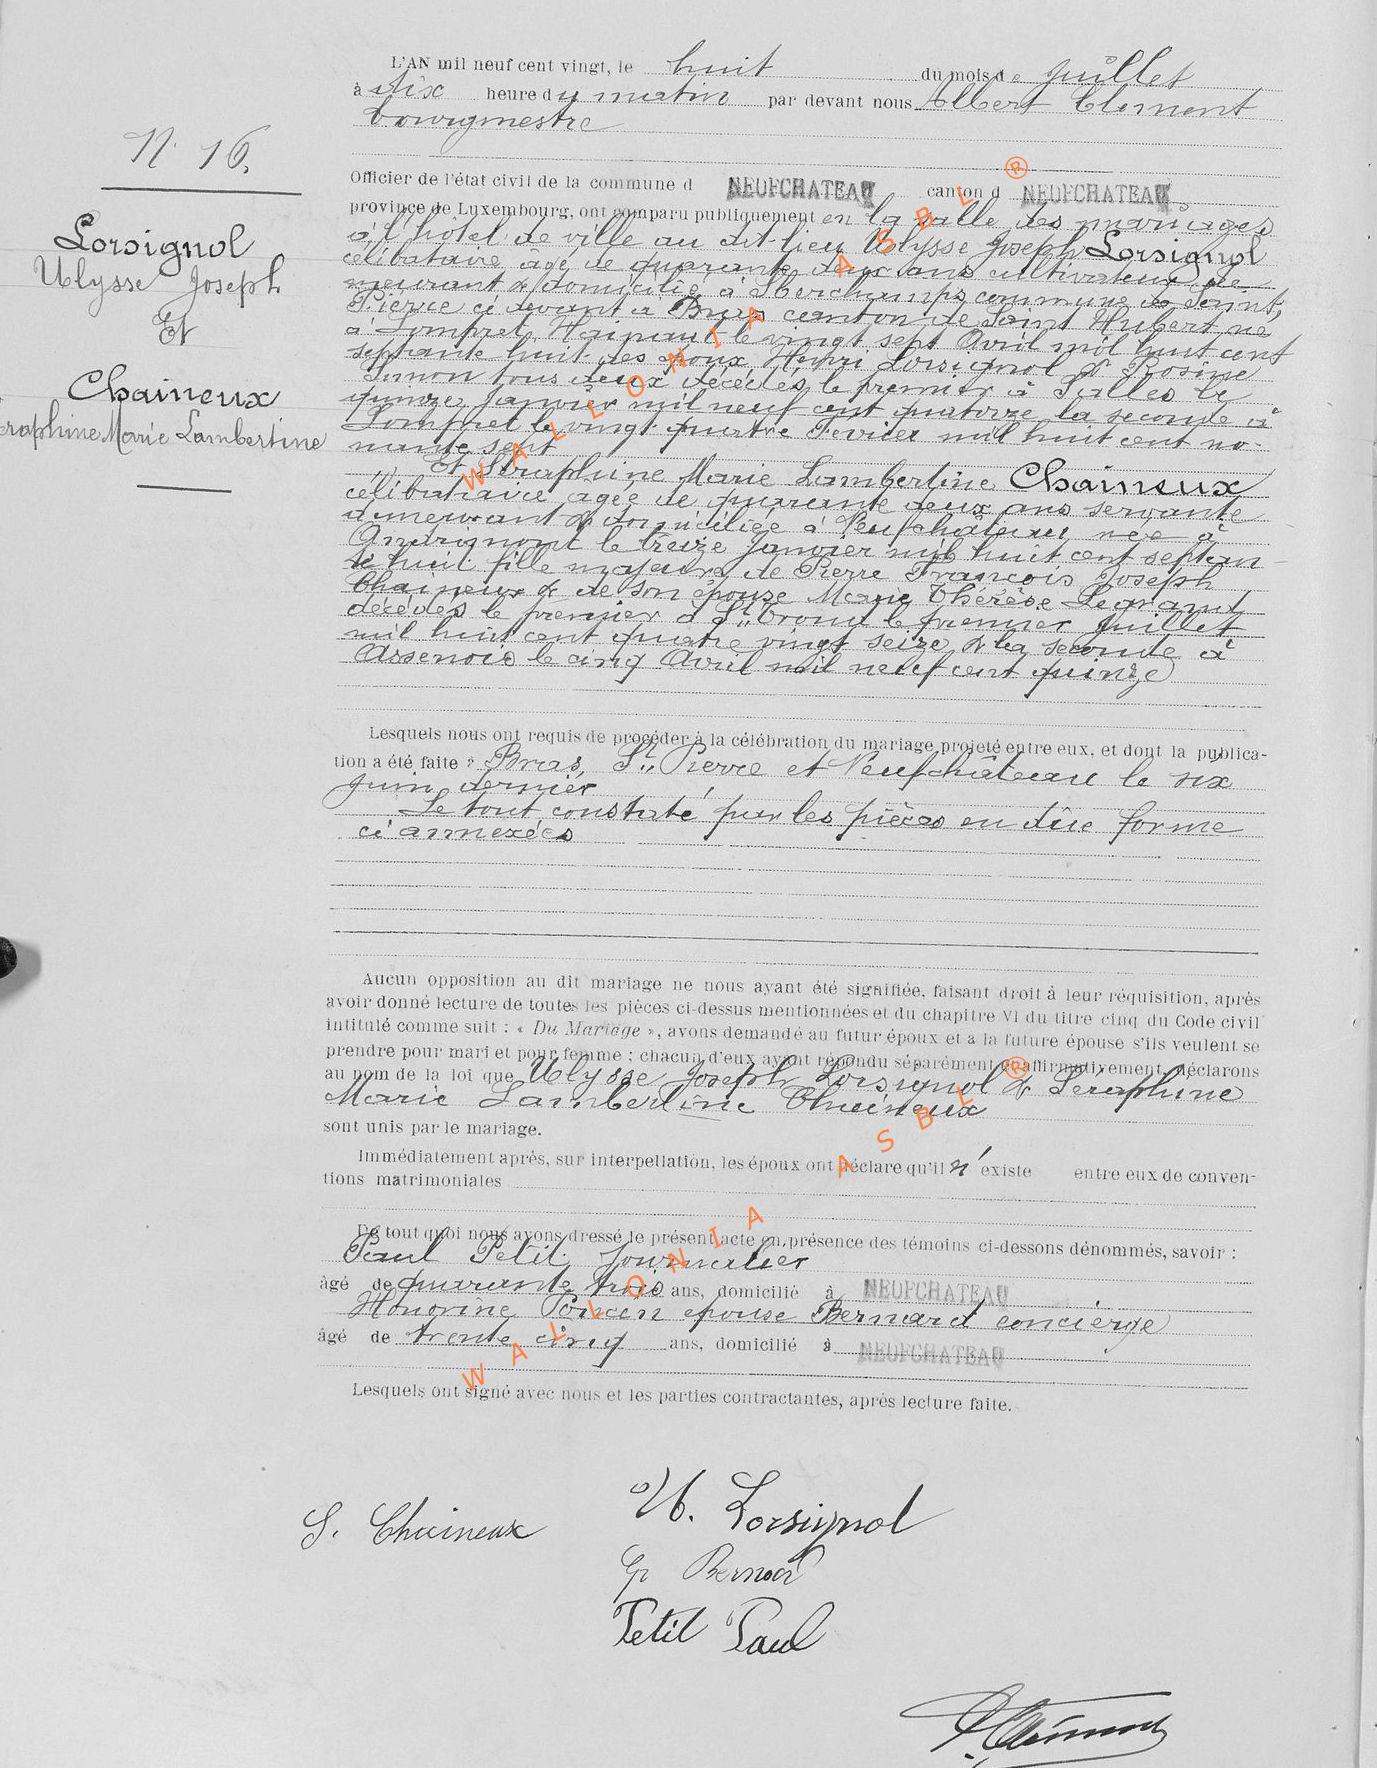 N. 16.
Lorsignol
Ulysse Joseph
Et
Chaineux
raphine Marie Lambertine
L'AN mil neuf cent vingt, le huit du mois de Juillet
à dix heure du matin par devant nous Albert Clement
bourgmestre
Officier de l'état civil de la commune d NEUFCHATEAU canton d NEUFCHATEAU
province de Luxembourg, ont comparu publiquement en la salle des mariages
à l'hôtel de ville au dit lieu Ulysse Joseph Lorsignol
célibataire, agé de quarante deux ans cultivateur de
meurant & domicilié à Sberchamps commune de Saint,
Pierre ci devant à Bras canton de Saint Hubert né
à Lompret Hainaut le vingt sept Avril mil huit cent
septante huit des époux Henri Lorsignol & Rosine
Simon tous deux décédés, le premier à Salles le
quinze Janvier mil neuf cent quatorze la seconde à
Lompret le vingt quatre Fevrier mil huit cent no-
nante sept
Et Séraphine Marie Lambertine Chaineux
célibataire agée de quarante deux ans servante
demeurant & domiciliée à Neufchâteau, née à
le treize Janvier mil huit cent septan-
te huit fille majeure de Pierre François Joseph
Chaineux & de son épouse Marie Thérèse Legrand
décédés le premier à St Trond le premier Juillet
mil huit cent quatre vingt seize & la seconde à
Assenois le cinq Avril mil neuf cent quinze
Lesquels nous ont requis de procéder à la célébration du mariage projeté entre eux, et dont la publica-
tion a été faite à Bras, St Pierre et Neufchâteau le six
Juin dernier
Le tout constaté par les pièces en dûe forme
ci annexées
Aucun opposition au dit mariage ne nous ayant été signifiée, faisant droit à leur réquisition, après
avoir donné lecture de toutes les pièces ci-dessus mentionnées et du chapitre VI du titre cinq du Code civil
intitulé comme suit : « Du Mariage », avons demandé au futur époux et a la future épouse s'ils veulent se
prendre pour mari et pour femme ; chacun d'eux ayant répondu séparément et affirmativement, déclarons
au nom de la loi que Ulysse Joseph Lorsignol & Seraphine
Marie Lambertine Chaineux
sont unis par le mariage.
Immédiatement après, sur interpellation, les époux ont déclare qu'il n'existe entre eux de conven-
tions matrimoniales
De tout quoi nous avons dressé le présent acte en présence des témoins ci-dessons dénommés, savoir :
Paul Petit Journalier
âgé de quarante trois ans, domicilié à NEUFCHATEAU
Honorine Poncin epouse Bernard concierge
âgé de trente cinq ans, domicilié à NEUFCHATEAU
Lesquels ont signé avec nous et les parties contractantes, après lecture faite.
S. Chaineux
U. Lorsignol
Ep Bernard
Petit Paul
A. Clément
WALLONIA ASBL ®
WALLONIA ASBL ®